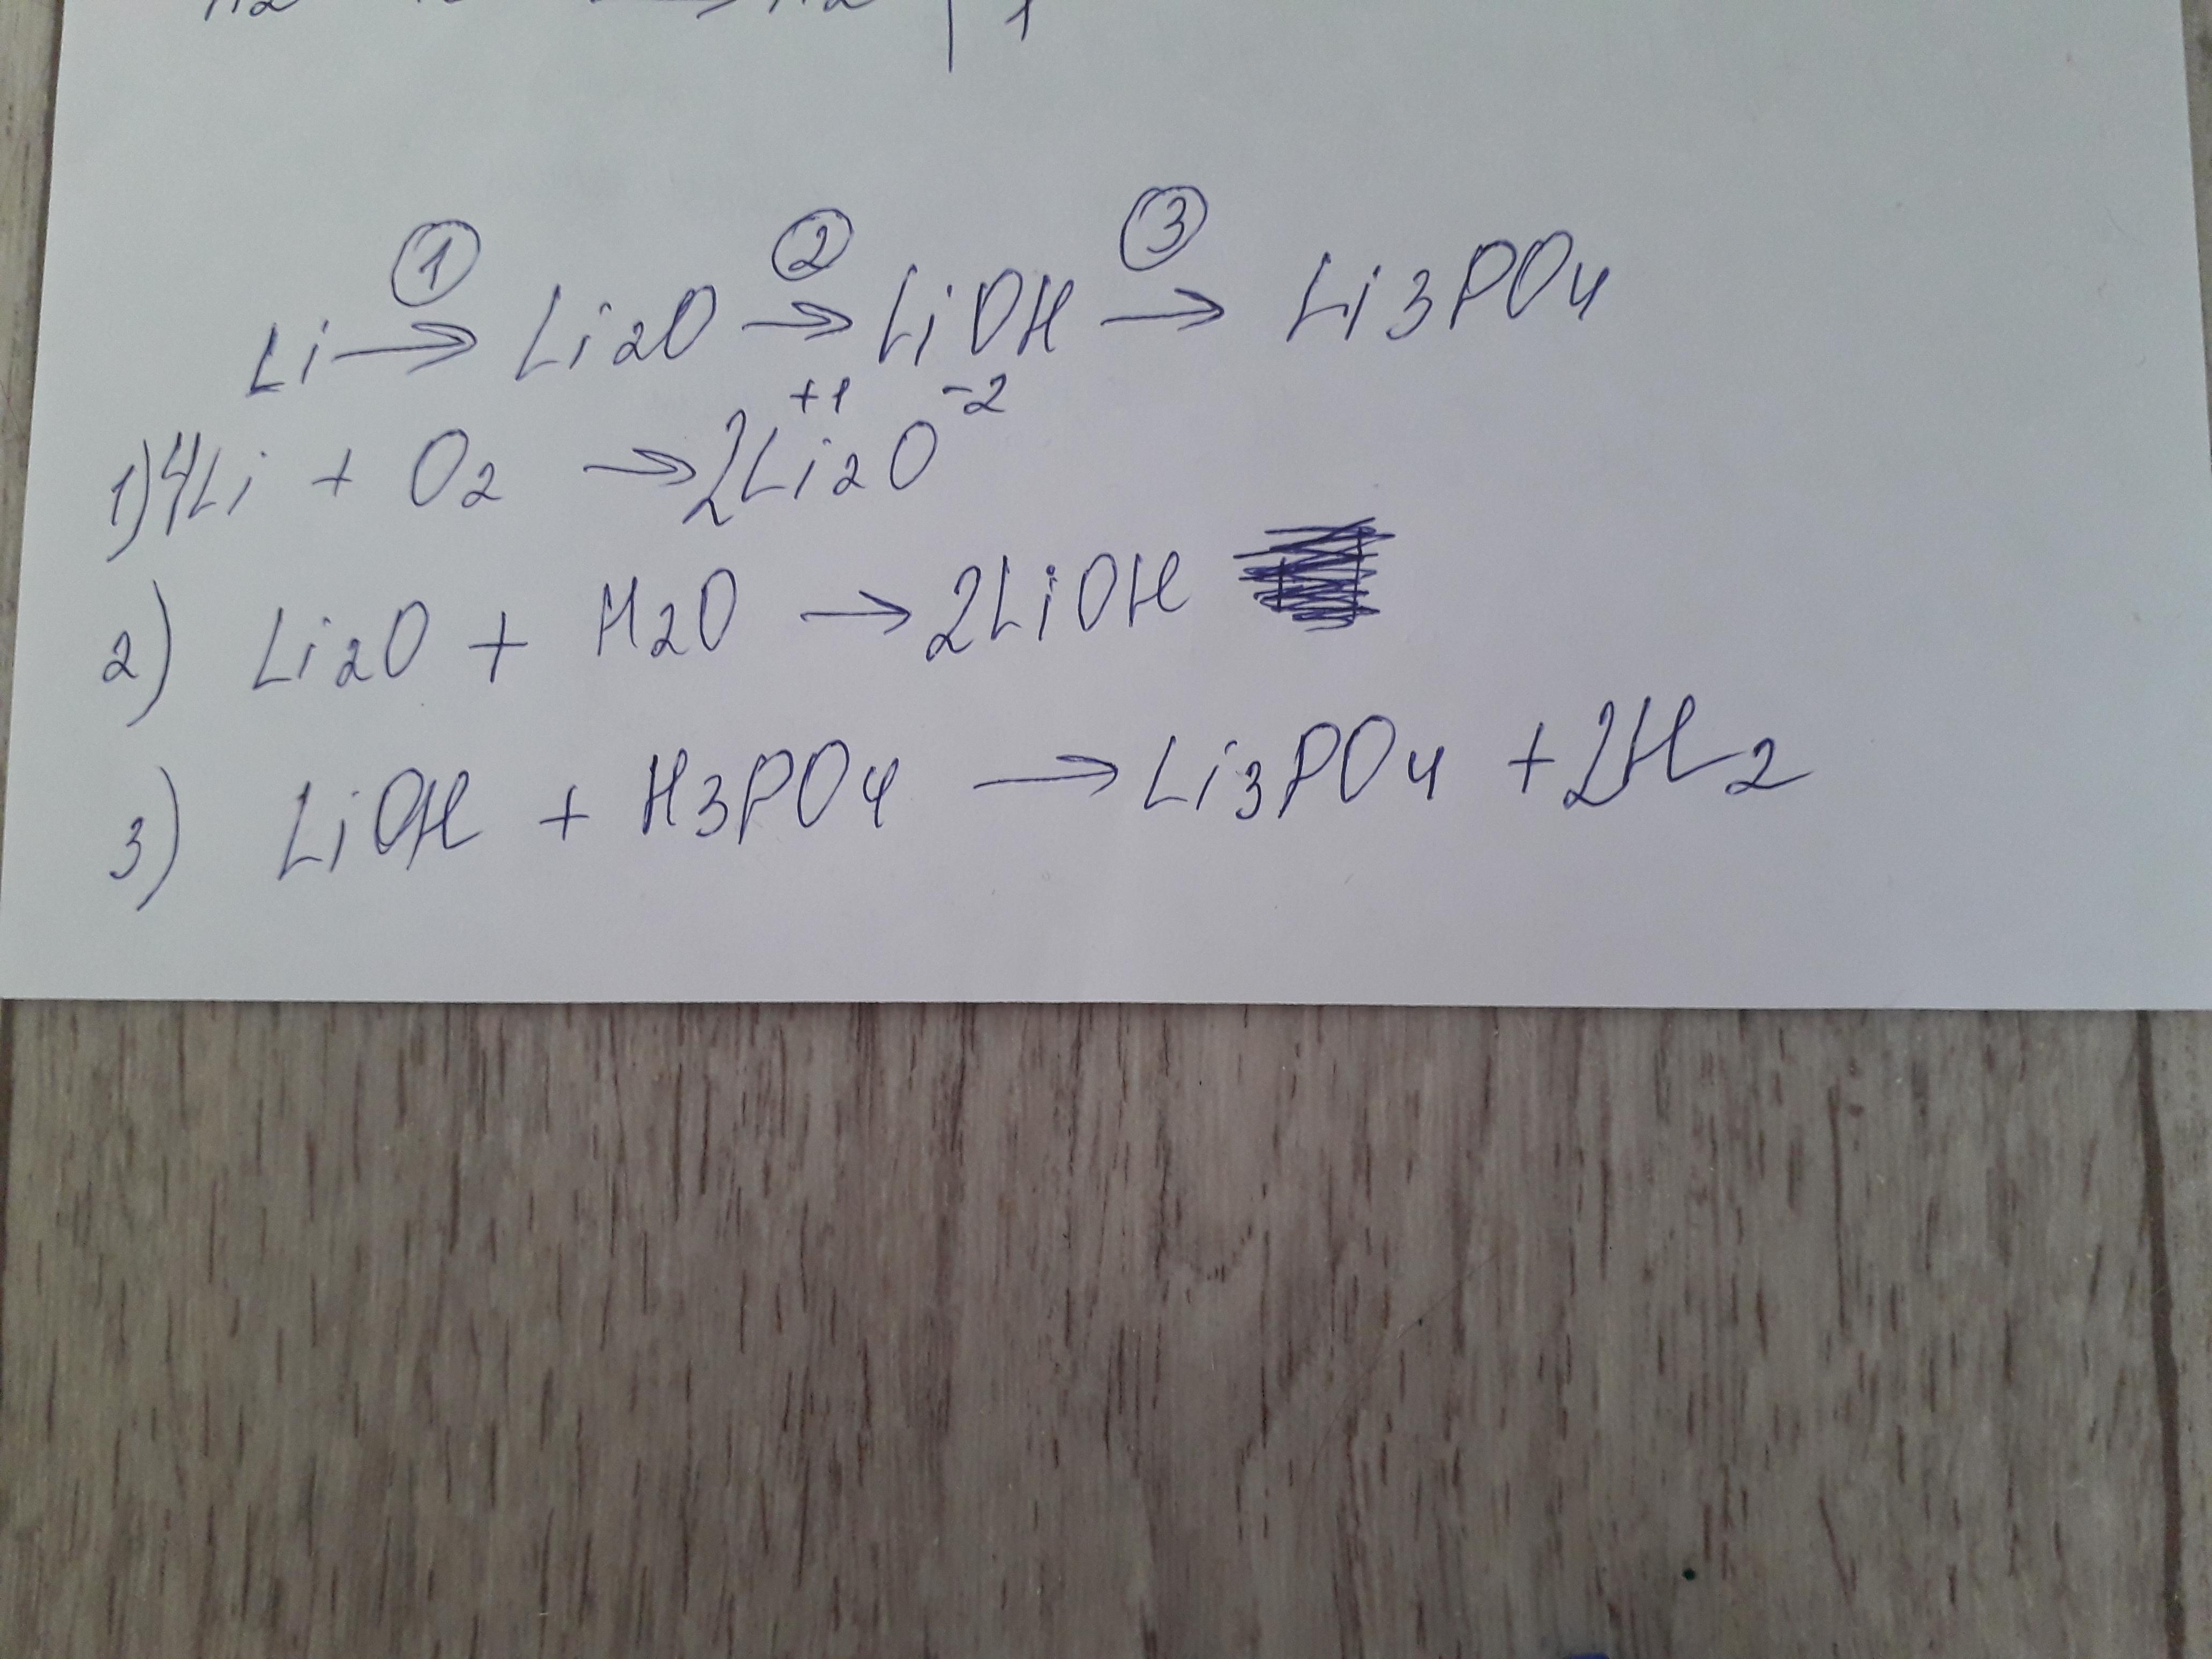 ① ② ③
Li → Li2O → LiOH → Li3PO4
+1 -2
1) 4Li + O2 → 2Li2O
2) Li2O + H2O → 2LiOH
3) LiOH + H3PO4 → Li3PO4 + 2H2